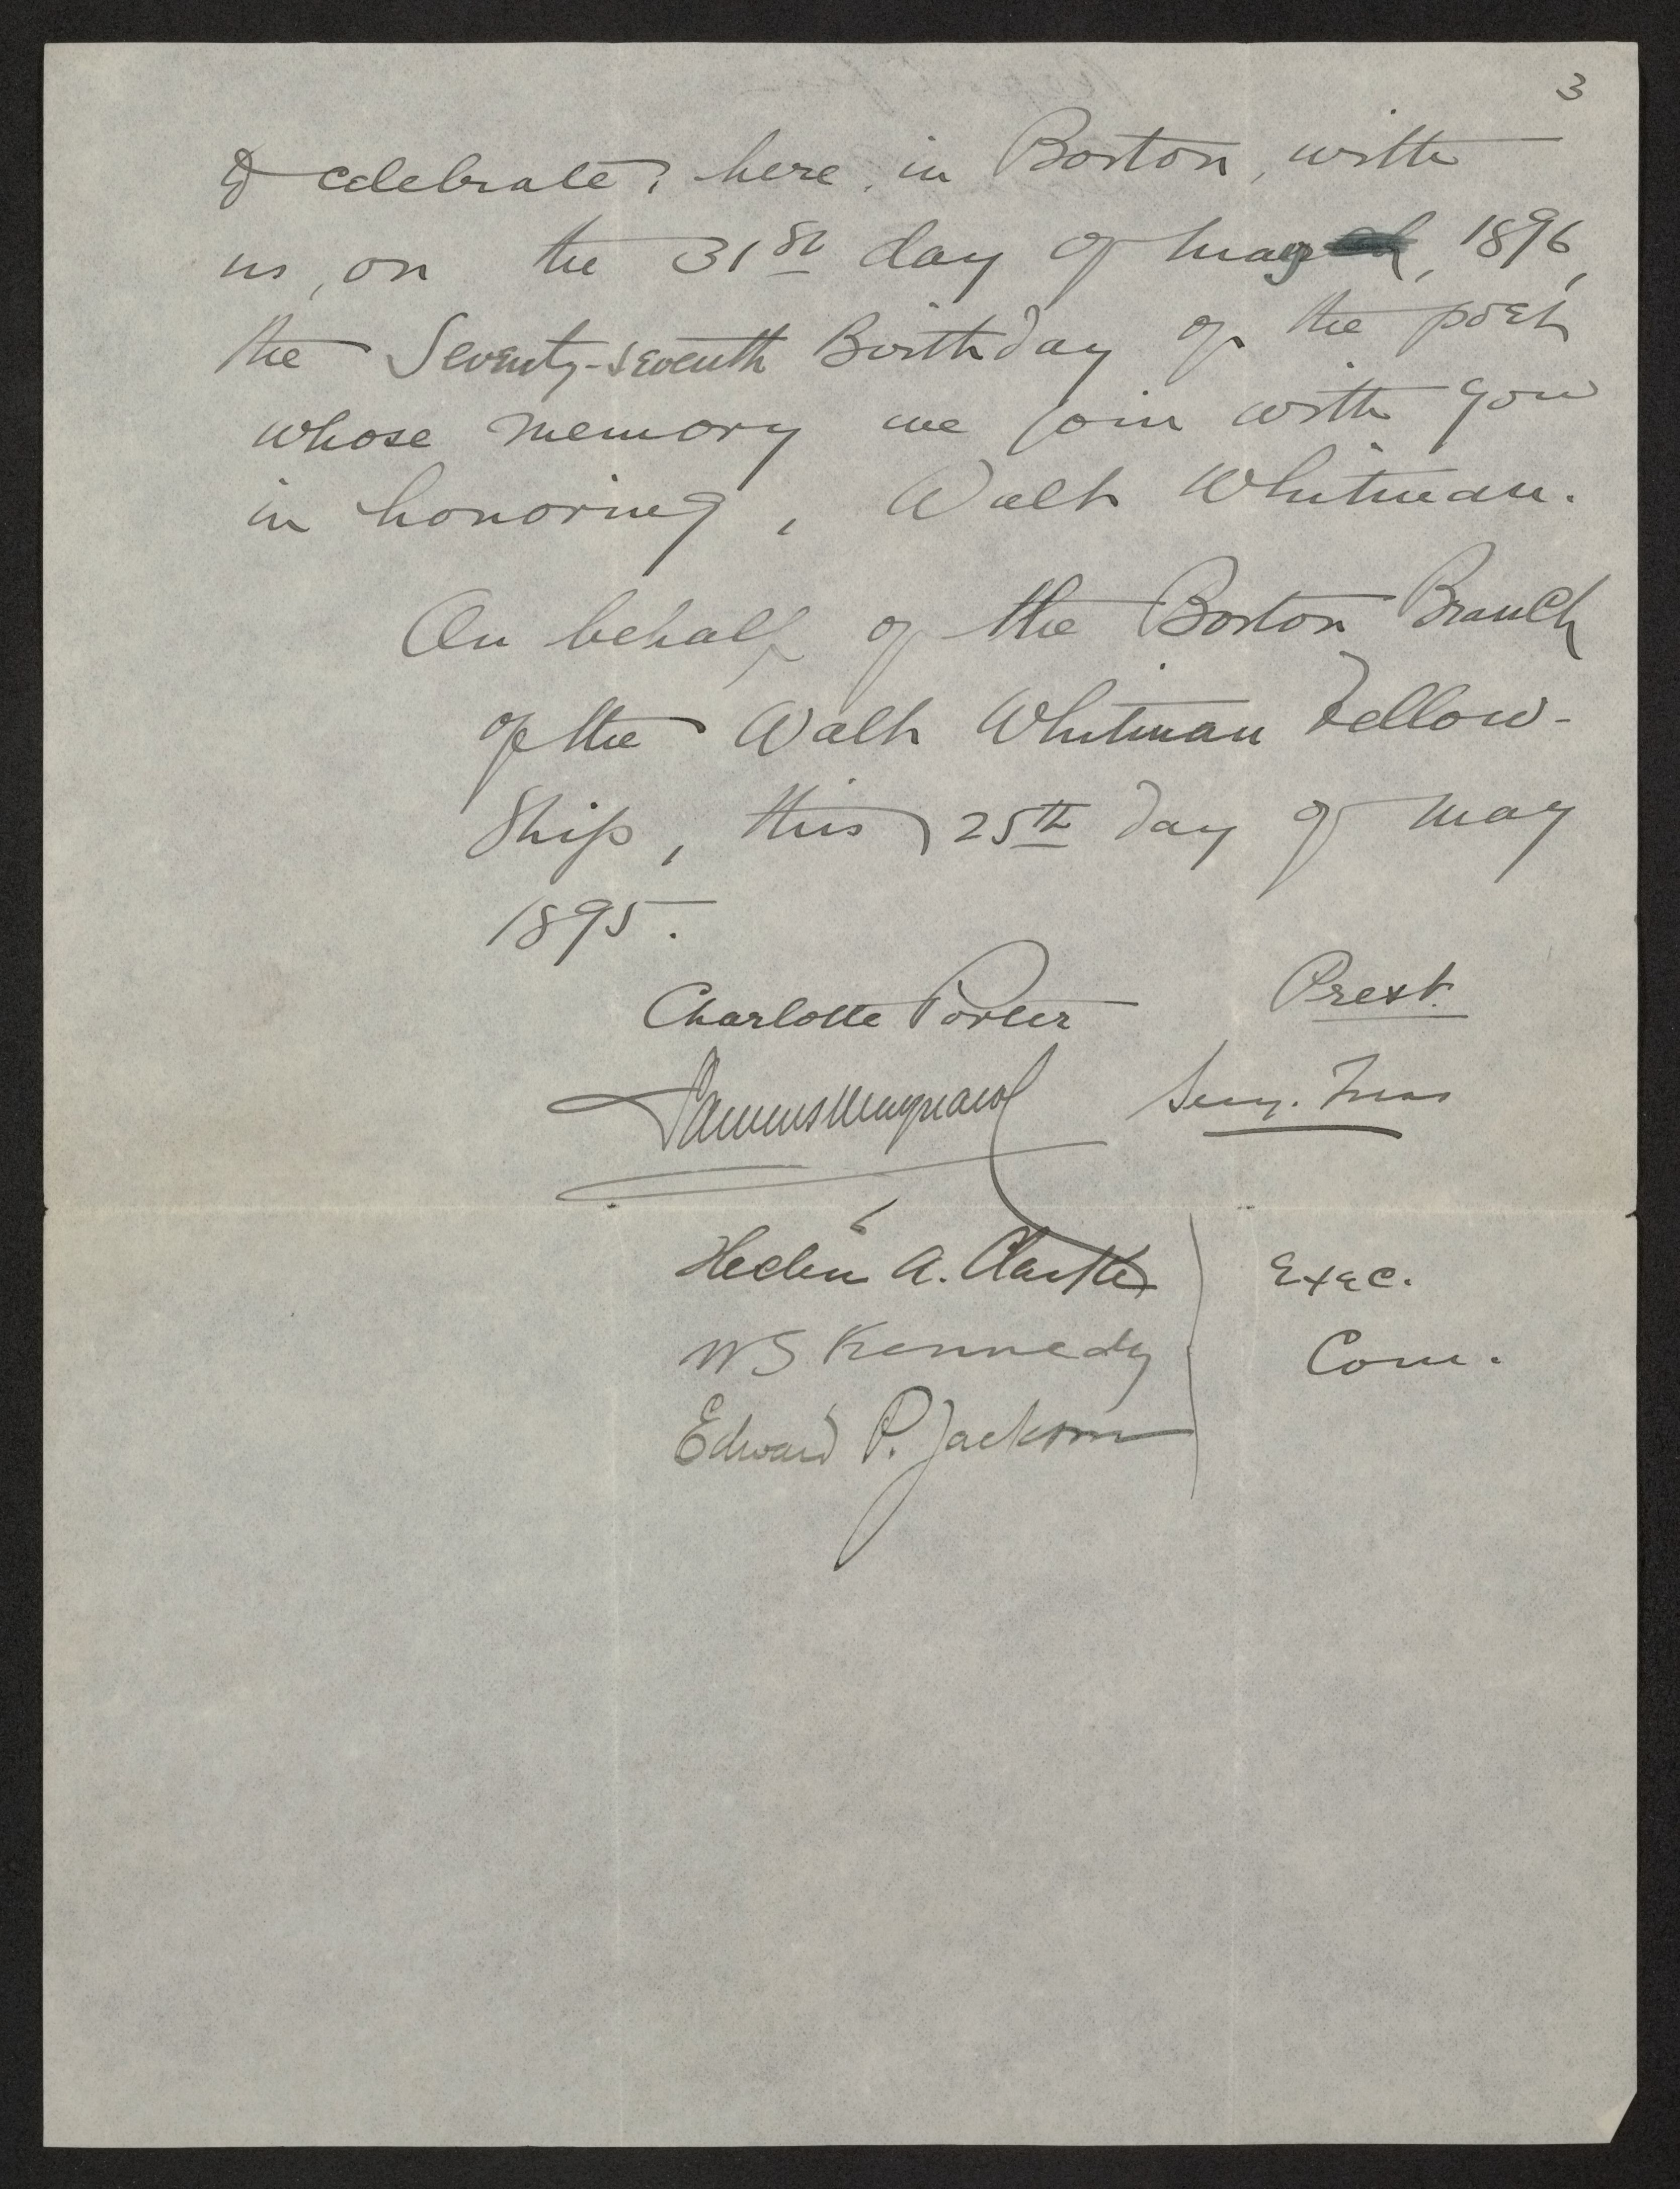 3
& celebrate, here, in Boston, with
us, on the 31st day of May, 1896,
the Seventy-seventh Birthday of the poet
whose memory we join with you
in honoring, Walt Whitman.
On behalf of the Boston Branch
of the Walt Whitman Fellow-
ship, this 25th day of May
1895.
Charlotte Porter Prest.
Laurens Maynard Secy. Treas
Helen A. Clarke Exec.
WS Kennedy Com.
Edward P. Jackson